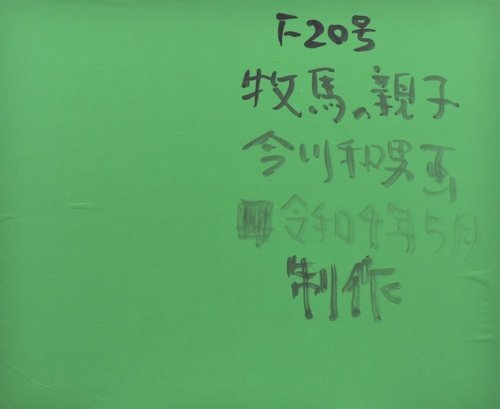 F-20号
牧馬の親子
今川和男画
令和4年5月
制作